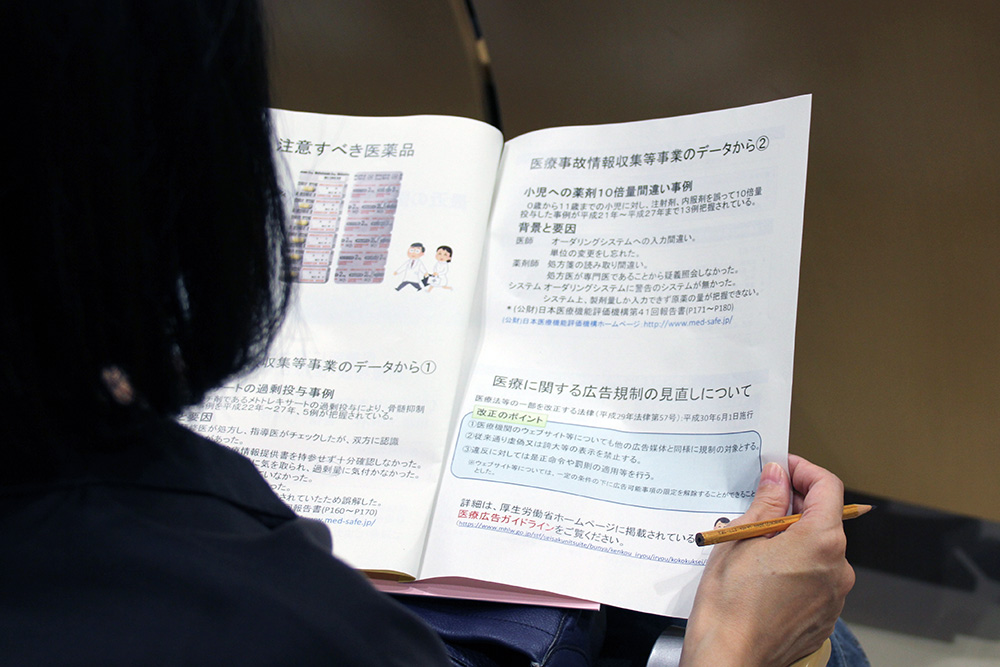 注意すべき医薬品
収集等事業のデータから①
サートの過剰投与事例
剤であるメトトレキサートの過剰投与により、骨髄抑制
例を平成22年～27年、5例が把握されている。
要因
修医が処方し、指導医がチェックしたが、双方に認識
があった。
情報提供書を持参せず十分確認しなかった。
に気を取られ、過剰量に気付かなかった。
いなかった。
されていたため誤解した。
報告書(P160～P170)
www.med-safe.jp/
医療事故情報収集等事業のデータから②
小児への薬剤10倍量間違い事例
0歳から11歳までの小児に対し、注射剤、内服剤を誤って10倍量
投与した事例が平成21年～平成27年まで13例把握されている。
背景と要因
医師 オーダリングシステムへの入力間違い。
単位の変更をし忘れた。
薬剤師 処方箋の読み取り間違い。
処方医が専門医であることから疑義照会しなかった。
システム オーダリングシステムに警告のシステムが無かった。
システム上、製剤量しか入力できず原薬の量が把握できない。
*(公財)日本医療機能評価機構第41回報告書(P171～P180)
(公財)日本医療機能評価機構ホームページ http://www.med-safe.jp/
医療に関する広告規制の見直しについて
医療法等の一部を改正する法律(平成29年法律第57号):平成30年6月1日施行
改正のポイント
①医療機関のウェブサイト等についても他の広告媒体と同様に規制の対象とする。
②従来通り虚偽又は誇大等の表示を禁止する。
③違反に対しては是正命令や罰則の適用等を行う。
※ウェブサイト等については、一定の条件の下に広告可能事項の限定を解除することができること
とした。
詳細は、厚生労働省ホームページに掲載されている
医療広告ガイドラインをご覧ください。
(https://www.mhlw.go.jp/stf/seisakunitsuite/bunya/kenkou_iryou/iryou/kokokukisei/